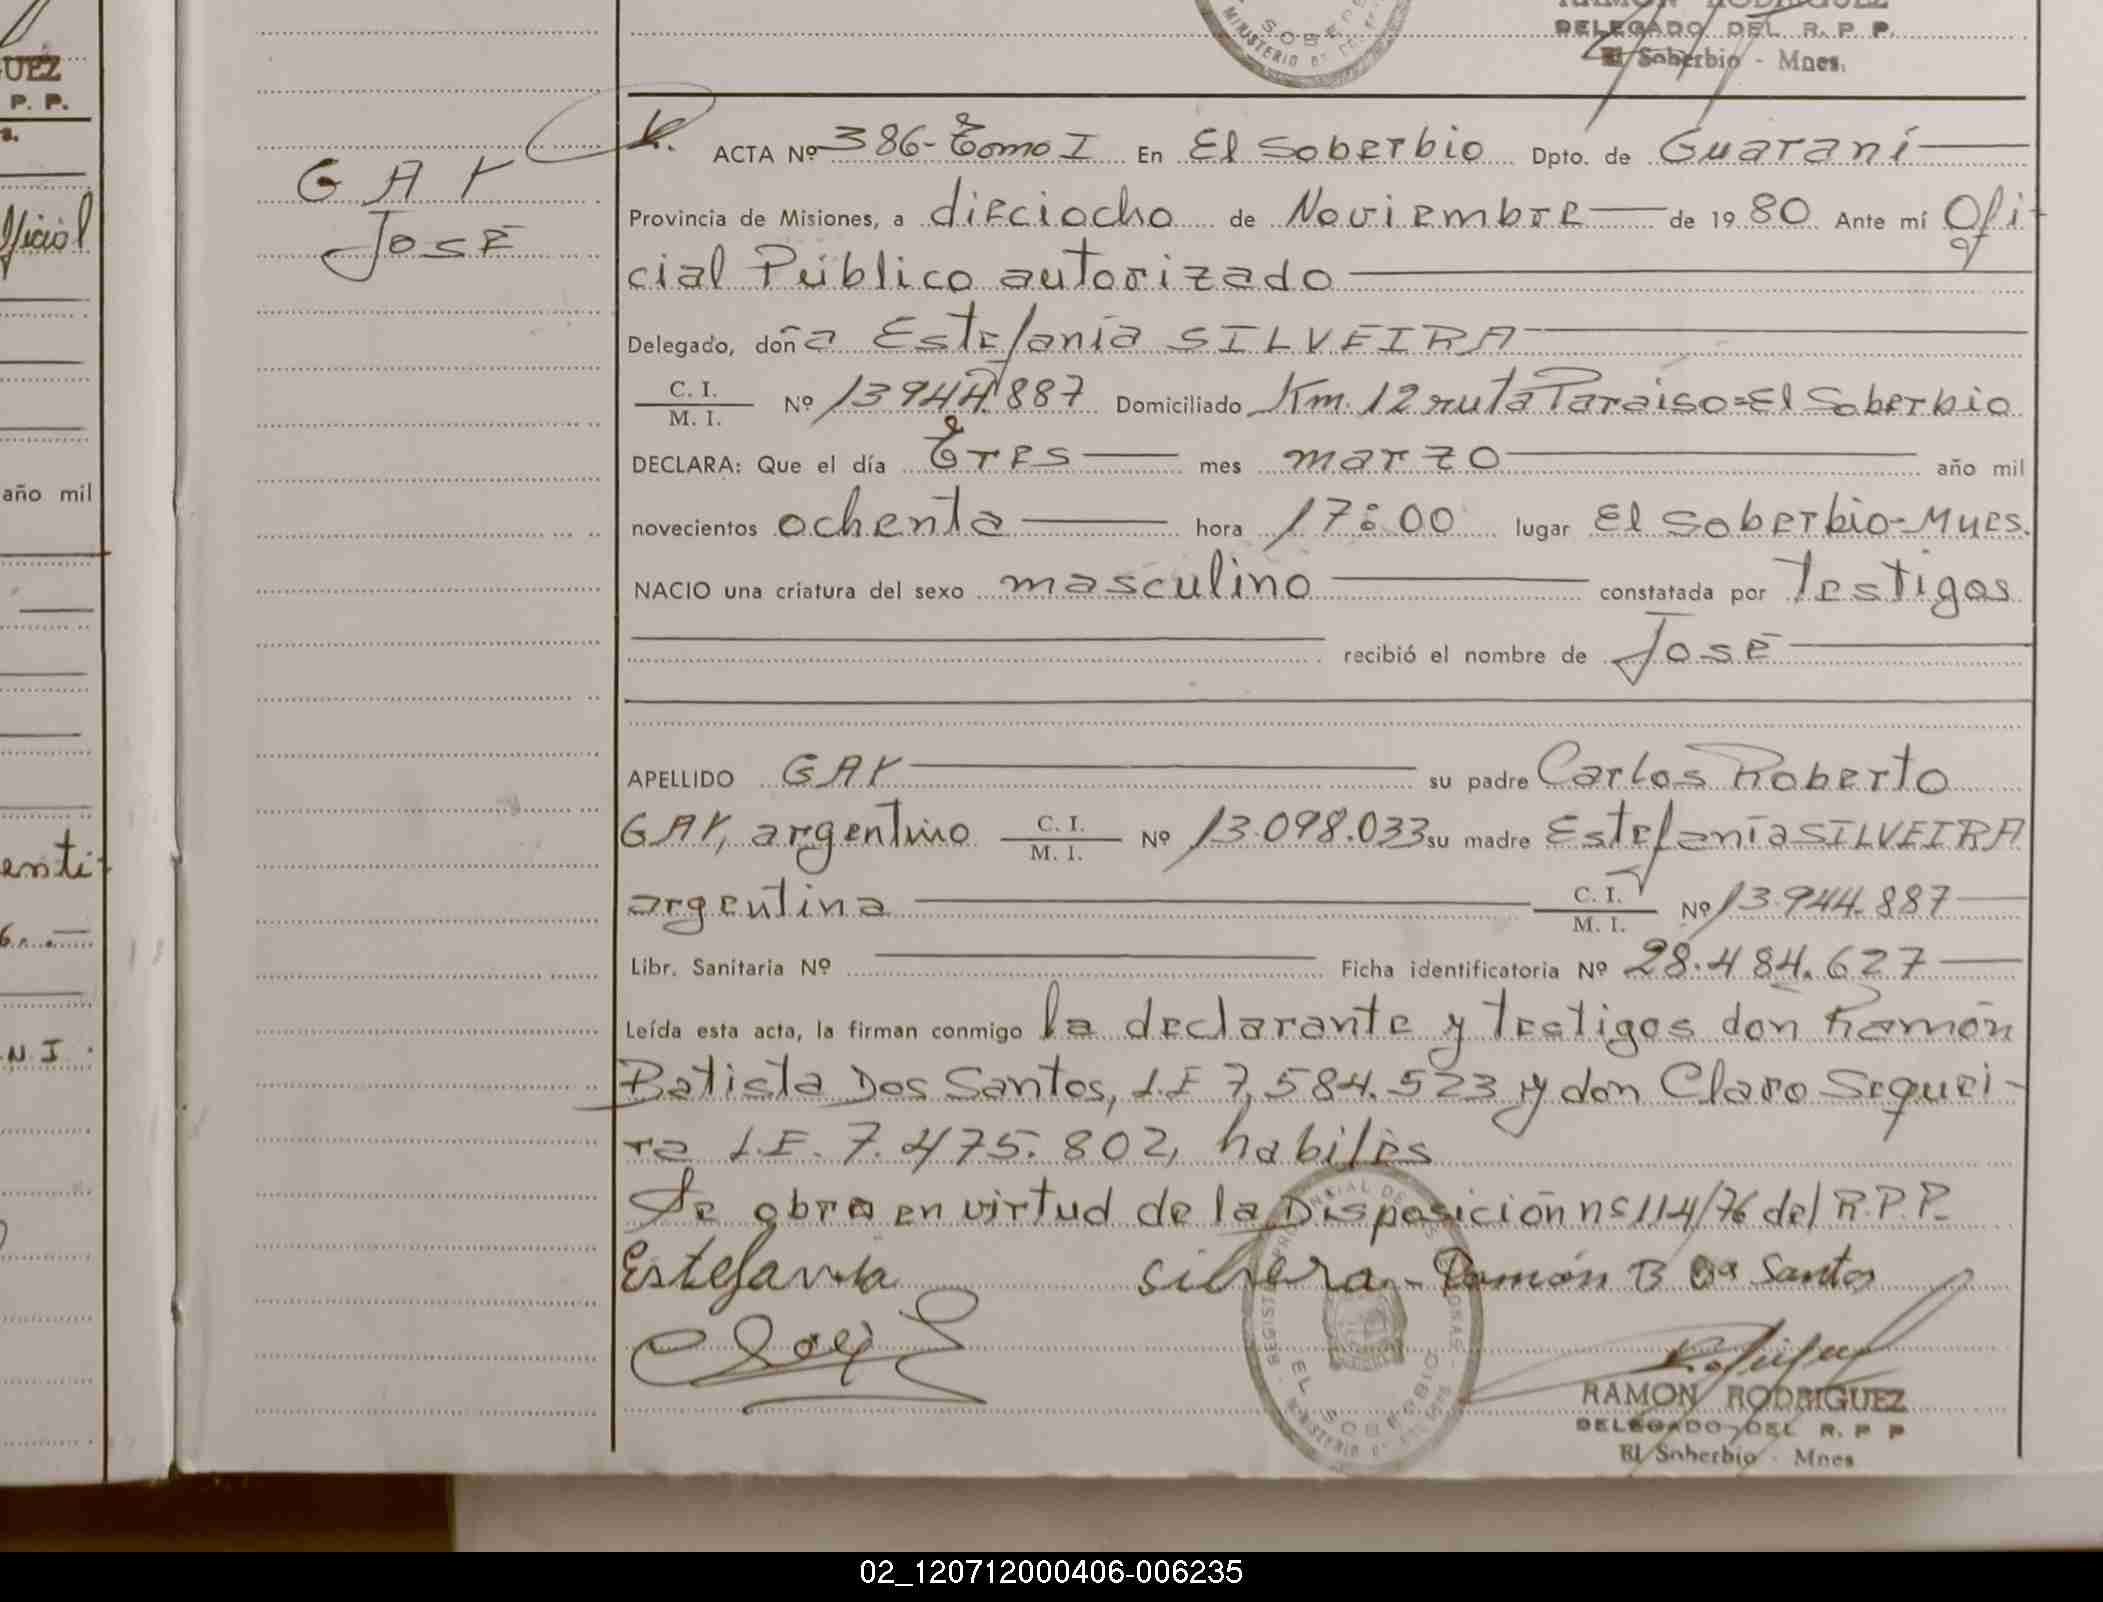 RAMON RODRIGUEZ
DELEGADO DEL R. P. P.
El Soberbio - Mnes.
GUEZ
P. P.
ficial
año mil
enti-
N. I.
GAY
José
ACTA Nº 386- Tomo I En El Soberbio Dpto. de Guaraní
Provincia de Misiones, a dieciocho de Noviembre de 1980 Ante mí Ofi-
cial Público autorizado
Delegado, doña Estefanía SILVEIRA
C. I.
M. I. Nº 13944.887 Domiciliado Km. 12 ruta Paraiso=El Soberbio
DECLARA: Que el día Tres mes marzo año mil
novecientos ochenta hora 17:00 lugar El Soberbio-Mnes.
NACIO una criatura del sexo masculino constatada por testigos
recibió el nombre de José
APELLIDO GAY su padre Carlos Roberto
GAY, argentino C. I. M. I. Nº 13.098.033 su madre Estefanía SILVEIRA
argentina C. I. M. I. Nº 13.944.887
Libr. Sanitaria Nº Ficha identificatoria Nº 28.484.627
Leída esta acta, la firman conmigo la declarante y testigos don Ramón
Batista Dos Santos, L.E 7,584.523 y don Claro Sequei-
ra L.E. 7.475.802, habiles
Se obra en virtud de la Disposición nº 114/76 del R.P.P.
Estefania silvera - Ramón B Dª Santos
REGISTRO PROVINCIAL DE LAS PERSONAS
EL SOBERBIO
RAMON RODRIGUEZ
DELEGADO DEL R. P P
El Soberbio - Mnes
02_120712000406-006235